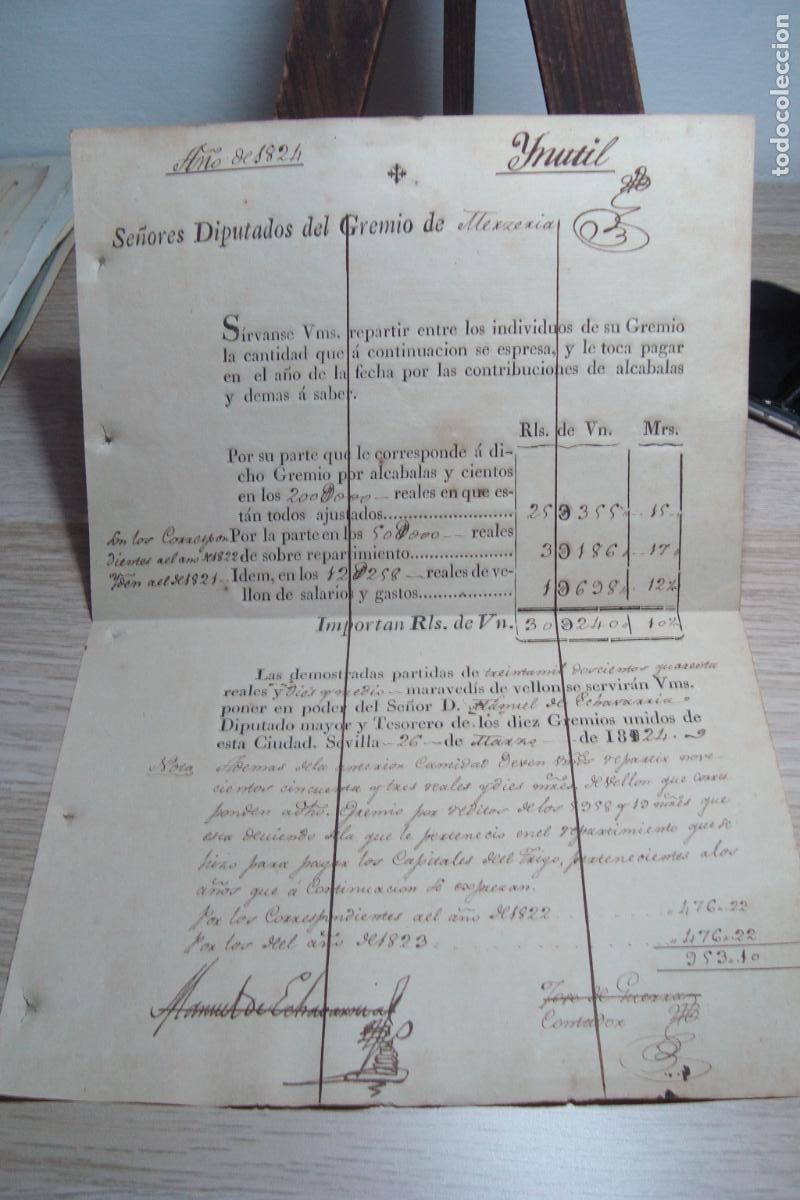 todocoleccion
Año de 1824
Ynutil
Señores Diputados del Gremio de Merzeria
Sírvanse Vms. repartir entre los individuos de su Gremio
la cantidad que á continuacion se espresa, y le toca pagar
en el año de la fecha por las contribuciones de alcabalas
y demas á saber.
Rls. de Vn. Mrs.
Por su parte que le corresponde á di-
cho Gremio por alcabalas y cientos
en los 200D000 reales en que es-
tán todos ajustados 25D355 15
En los Correspon
dientes ael año de 1822
Yden ael de 1821
Por la parte en los 50D000 reales
de sobre repartimiento 3D186 17
Idem, en los 12D258 reales de ve-
llon de salarios y gastos 1D698 12
Importan Rls. de Vn. 30D240 10
Las demostradas partidas de treinta mil doscientos quarenta
reales y dies y medio maravedís de vellon se servirán Vms.
poner en poder del Señor D. Manuel de Echavarria
Diputado mayor y Tesorero de los diez Gremios unidos de
esta Ciudad. Sevilla 26 de Marzo de 1824.
Nota Ademas dela anterior Cantidad deven Vmds repartir nove
cientos cincuenta y tres reales y dies mrs de vellon que corres
ponden adho. Gremio por reditos de los que
esta deviendo dela que le pertenecio enel repartimiento que se
hizo para pagar los Capitales del Trigo, pertenecientes alos
años que á Continuacion se expresan.
Por los Correspondientes ael año de 1822 476.22
Por los del año de 1823 476.22
953.10
Manuel de Echavarria
Jose de Guerra
Contador